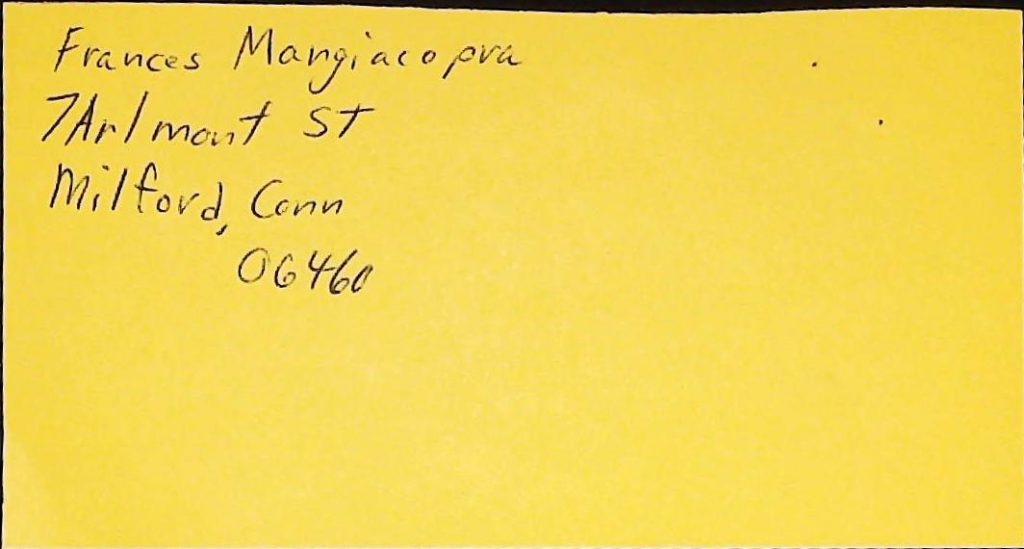 Frances Mangiacopra
7 Arlmont St
Milford, Conn
06460